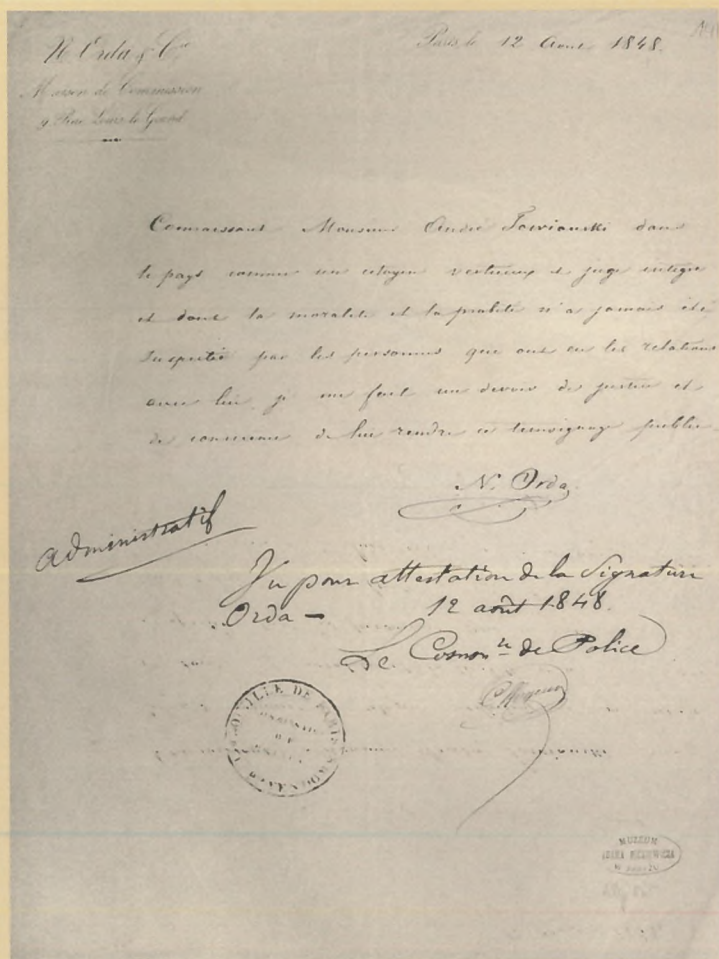 N. Orda & Cie
Maison de Commission
9 Rue Louis le Grand
Paris, le 12 Aout 1848.
Connaissant Monsieur André Towianski dans
le pays comme un citoyen vertueux et juge intègre
et dont la moralité et la probité n'a jamais été
suspectée par les personnes que ont eu les relations
avec lui, je me fait un devoir de justice et
de conscience de lui rendre ce temoignage public.
N. Orda
administratif
Vu pour attestation de la Signature
Orda — 12 août 1848.
Le Commre de Police
VILLE DE PARIS
MUZEUM
ADAMA MICKIEWICZA
W PARYŻU